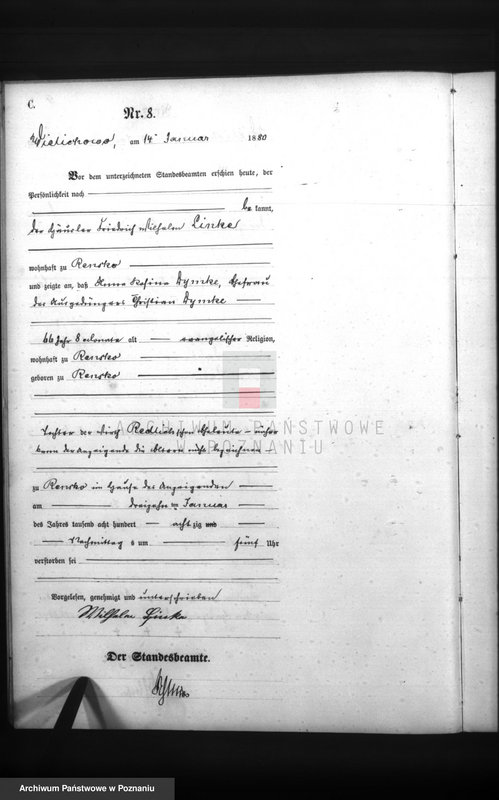 C.
Nr. 8.
am 14 Januar 1880
Vor dem unterzeichneten Standesbeamten erschien heute, der
Persönlichkeit nach
be kannt,
der Häusler Friedrich Wilhelm Linke
wohnhaft zu Rensko
und zeigte an, daß Anna Rosina Dymke, Ehefrau
des Ausgedingers Christian Dymke
66 Jahr 8 Monate alt evangelischer Religion,
wohnhaft zu Rensko
geboren zu Rensko
Tochter der Wirth Eheleute
kann der Anzeigende nicht bezeichnen
ARCHIWUM PAŃSTWOWE
W POZNANIU
zu Rensko im Hause des Anzeigenden
am dreizehn ten Januar
des Jahres tausend acht hundert acht zig und
Nachmittag s um fünf Uhr
verstorben sei
Vorgelesen, genehmigt und unterschrieben
Wilhelm Linke
Der Standesbeamte.
Archiwum Państwowe w Poznaniu